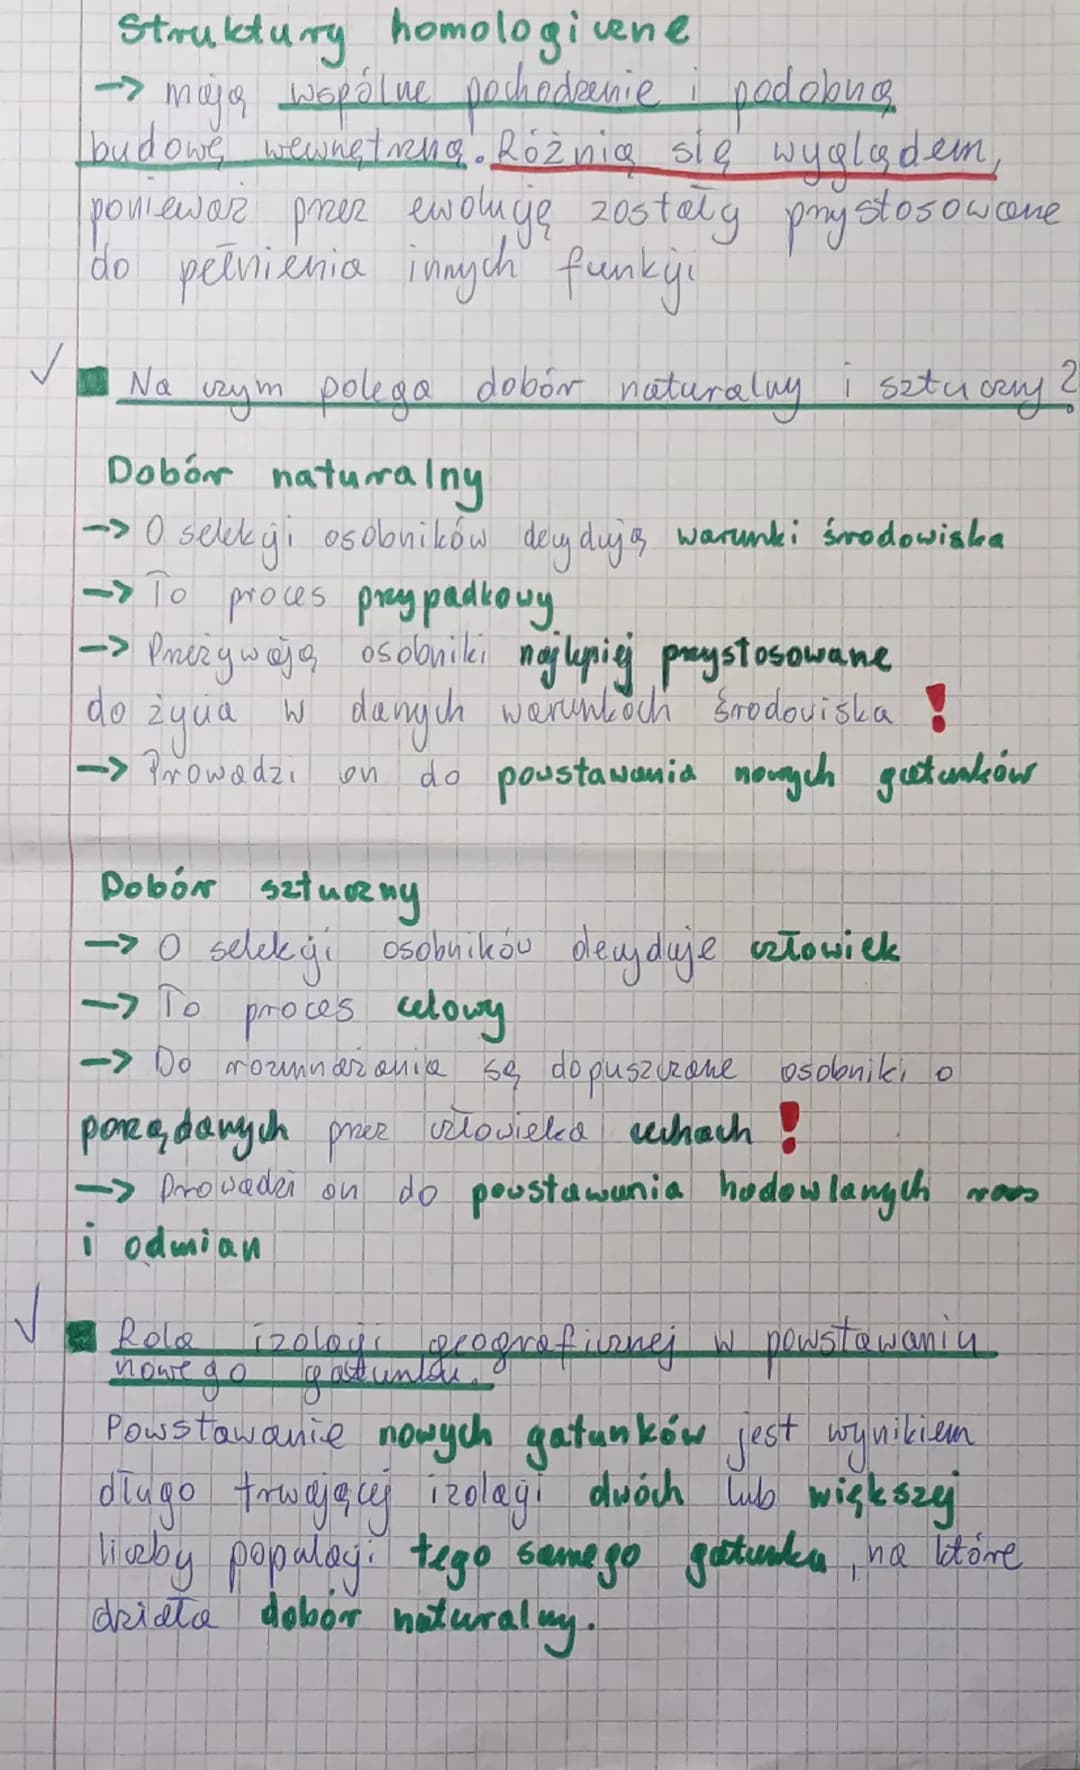 Struktury homologiczne
-> mają wspólne pochodzenie i podobną
budowę wewnętrzną. Różnią się wyglądem,
ponieważ przez ewolucję zostały przystosowane
do pełnienia innych funkcji
✓ Na czym polega dobór naturalny i sztuczny?
Dobór naturalny
-> O selekcji osobników decydują warunki środowiska
-> To proces przypadkowy
-> Przeżywają osobniki najlepiej przystosowane
do życia w danych warunkach środowiska !
-> Prowadzi on do powstawania nowych gatunków
Dobór sztuczny
-> O selekcji osobników decyduje człowiek
-> To proces celowy
-> Do rozmnażania są dopuszczane osobniki o
porządanych przez człowieka cechach !
-> Prowadzi on do powstawania hodowlanych ras
i odmian
✓ Rola izolacji geograficznej w powstawaniu
nowego gatunku.
Powstawanie nowych gatunków jest wynikiem
długo trwającej izolacji dwóch lub większej
liczby populacji tego samego gatunku, na które
działa dobór naturalny.